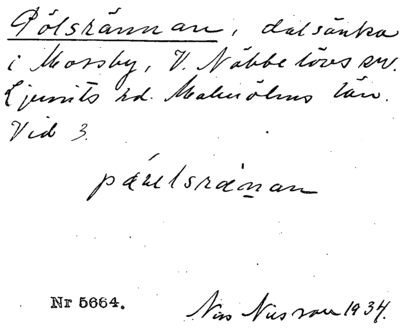 Pölsrännan, dalsänka
i Mossby, V. Nöbbelövs sn.
Ljunits hd. Malmöhus län.
Vid 3.
Nr 5664.
Nils Nilsson 1934.